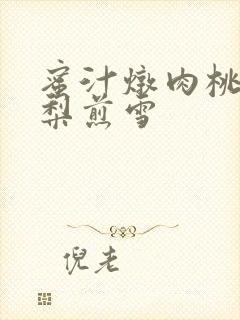 蜜汁燉肉桃
梨煎雪
倪老